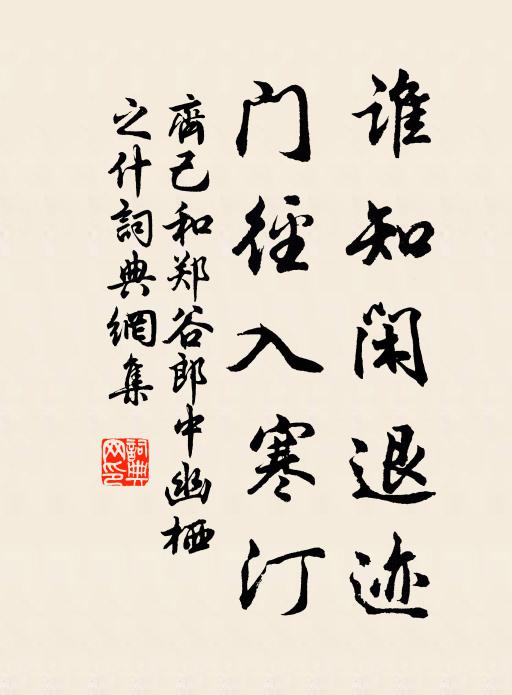 谁知闲退迹
门径入寒汀
齊己和郑谷郎中幽栖
之什詞典網集
詞典
网印